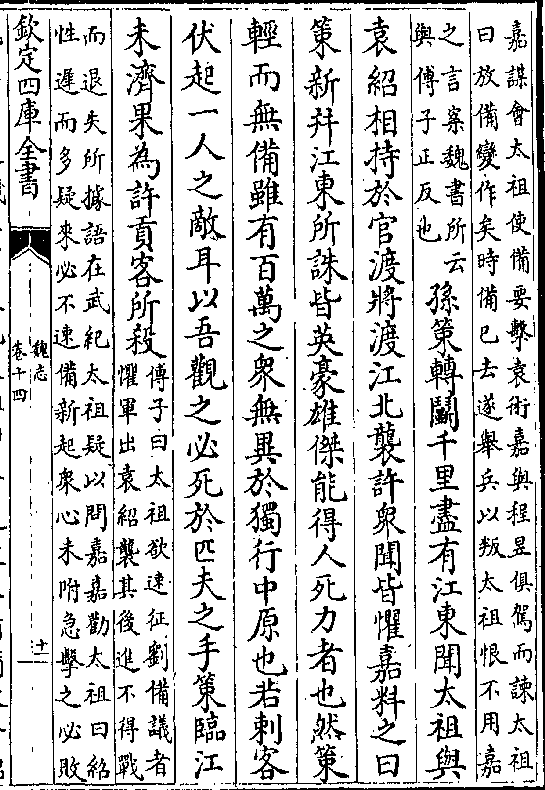 嘉謀會太祖使備要擊袁術嘉與程昱俱駕而諫太祖
曰放備變作矣時備已去遂舉兵以叛太祖恨不用嘉
之言案魏書所云
與傅子正反也
孫策轉鬭千里盡有江東聞太祖與
袁紹相持於官渡將渡江北襲許衆聞皆懼嘉料之曰
策新并江東所誅皆英豪雄傑能得人死力者也然策
輕而無備雖有百萬之衆無異於獨行中原也若刺客
伏起一人之敵耳以吾觀之必死於匹夫之手策臨江
未濟果為許貢客所殺
傅子曰太祖欲速征劉備議者
懼軍出袁紹襲其後進不得戰
而退失所據語在武紀太祖疑以問嘉嘉勸太祖曰紹
性遲而多疑來必不速備新起衆心未附急擊之必敗
欽定四庫全書
魏志
卷十四
十